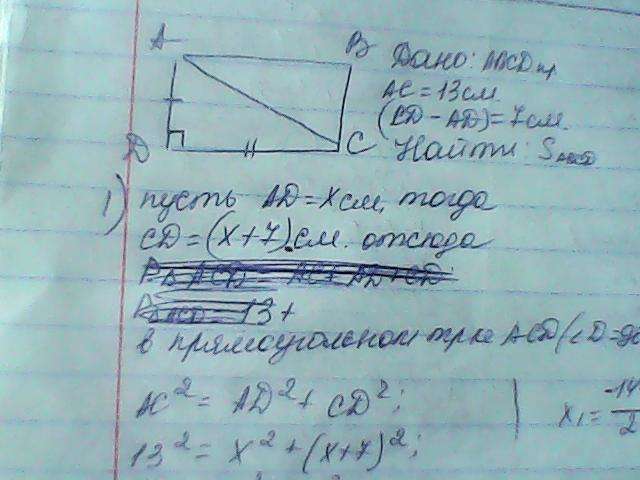 A B
D C
Дано: ABCD пр
AC = 13 см.
(CD - AD) = 7 см.
Найти: S ABCD
1) пусть AD = x см, тогда
CD = (x+7) см. отсюда
P ACD AC + AD + CD
P ACD 13 +
в прямоугольном тр-ке ACD (∠D=90
AC² = AD² + CD²;
13² = x² + (x+7)²;
x₁ = -14/2